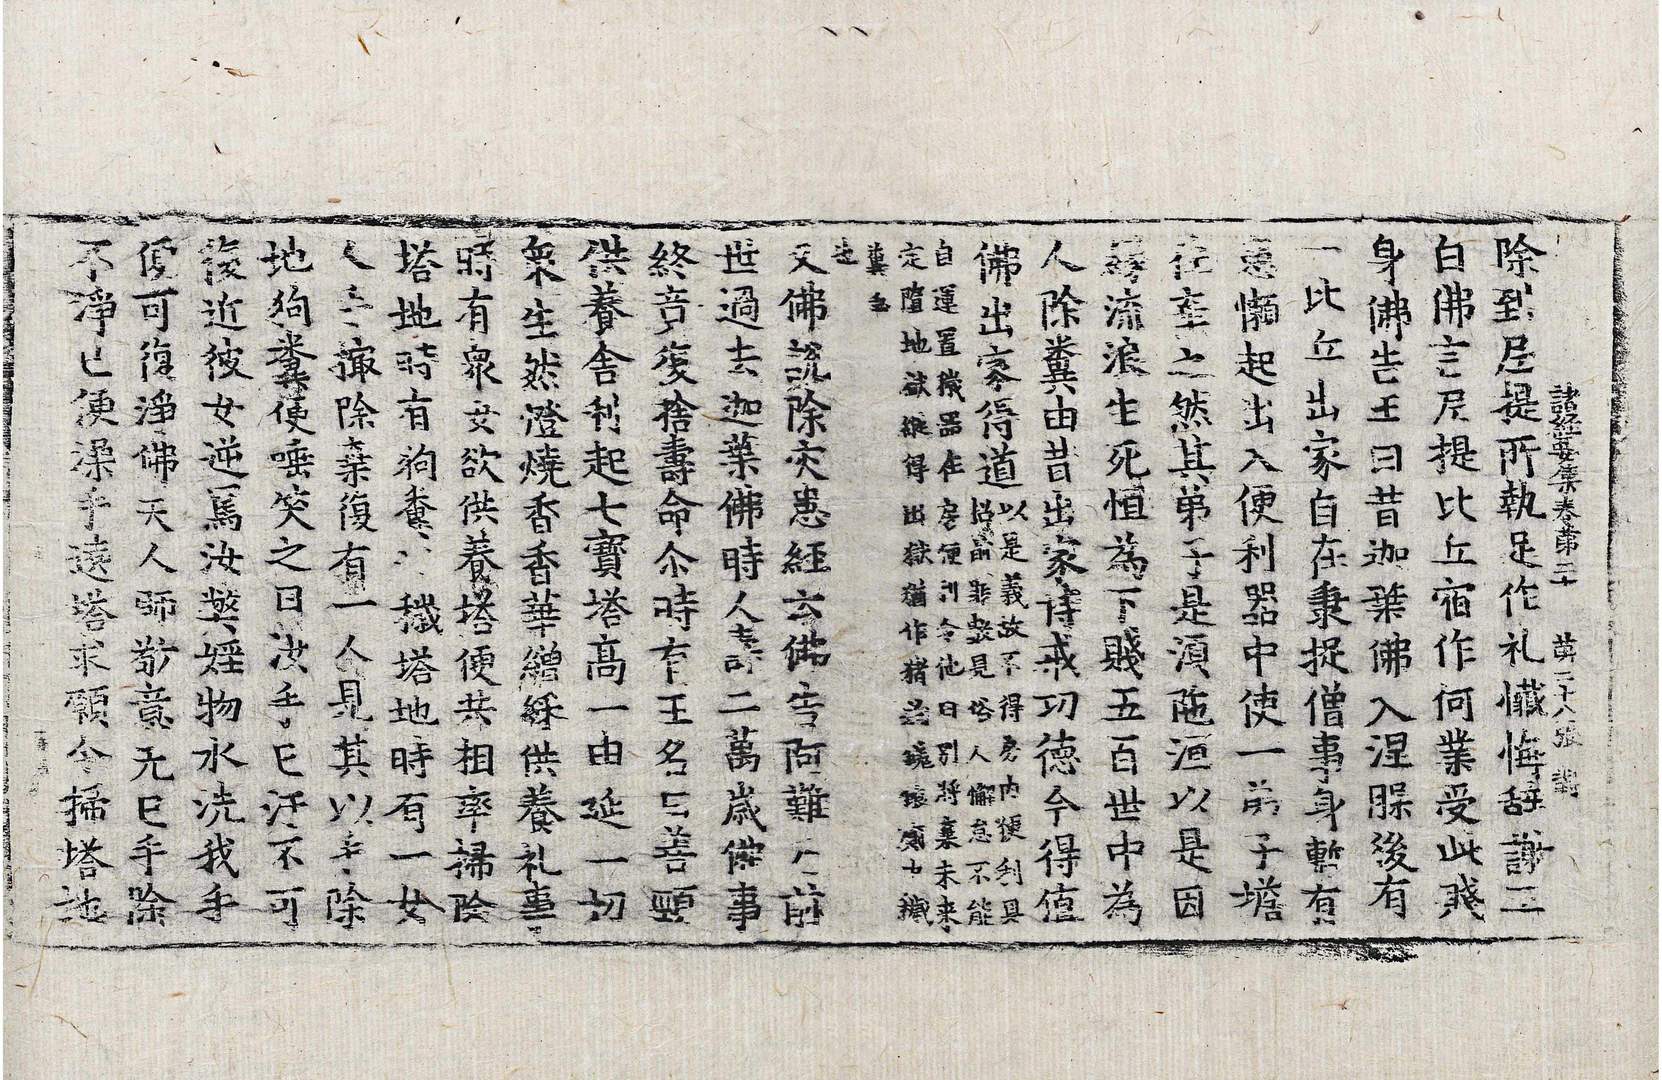 諸經要集卷第二十　第二十八張
除到尼提所執足作礼懺悔辞謝三
白佛言尼提比丘宿作何業受此賤
身佛告王曰昔迦葉佛入涅槃後有
一比丘出家自在秉捉僧事身暫有
患懶起出入便利器中使一弟子擔
往棄之然其弟子是須陁洹以是因
緣流浪生死恒為下賤五百世中為
人除糞由昔出家持戒功德今得值
佛出家得道
以是義故不得房內便利具
招前罪數見俗人懈怠不能
自運置穢器在房便利令他日別將棄未來
定墮地獄縱得出獄猶作猪
糞
也
又佛說除灾患經云佛告阿難前
世過去迦葉佛時人壽二萬歲佛事
終竟復捨壽命尒時有王名曰善頸
供養舍利起七寶塔高一由延一切
衆生然燈燒香香華繒綵供養礼事
時有衆女欲供養塔便共相率掃除
塔地時有狗糞穢塔地時有一女
人手撮除棄復有一人見其以手除
地狗糞便唾笑之曰汝手已汙不可
復近彼女逆罵汝弊婬物水洗我手
便可復淨佛天人師敬意无已手除
不淨已便澡手遶塔求願今掃塔地